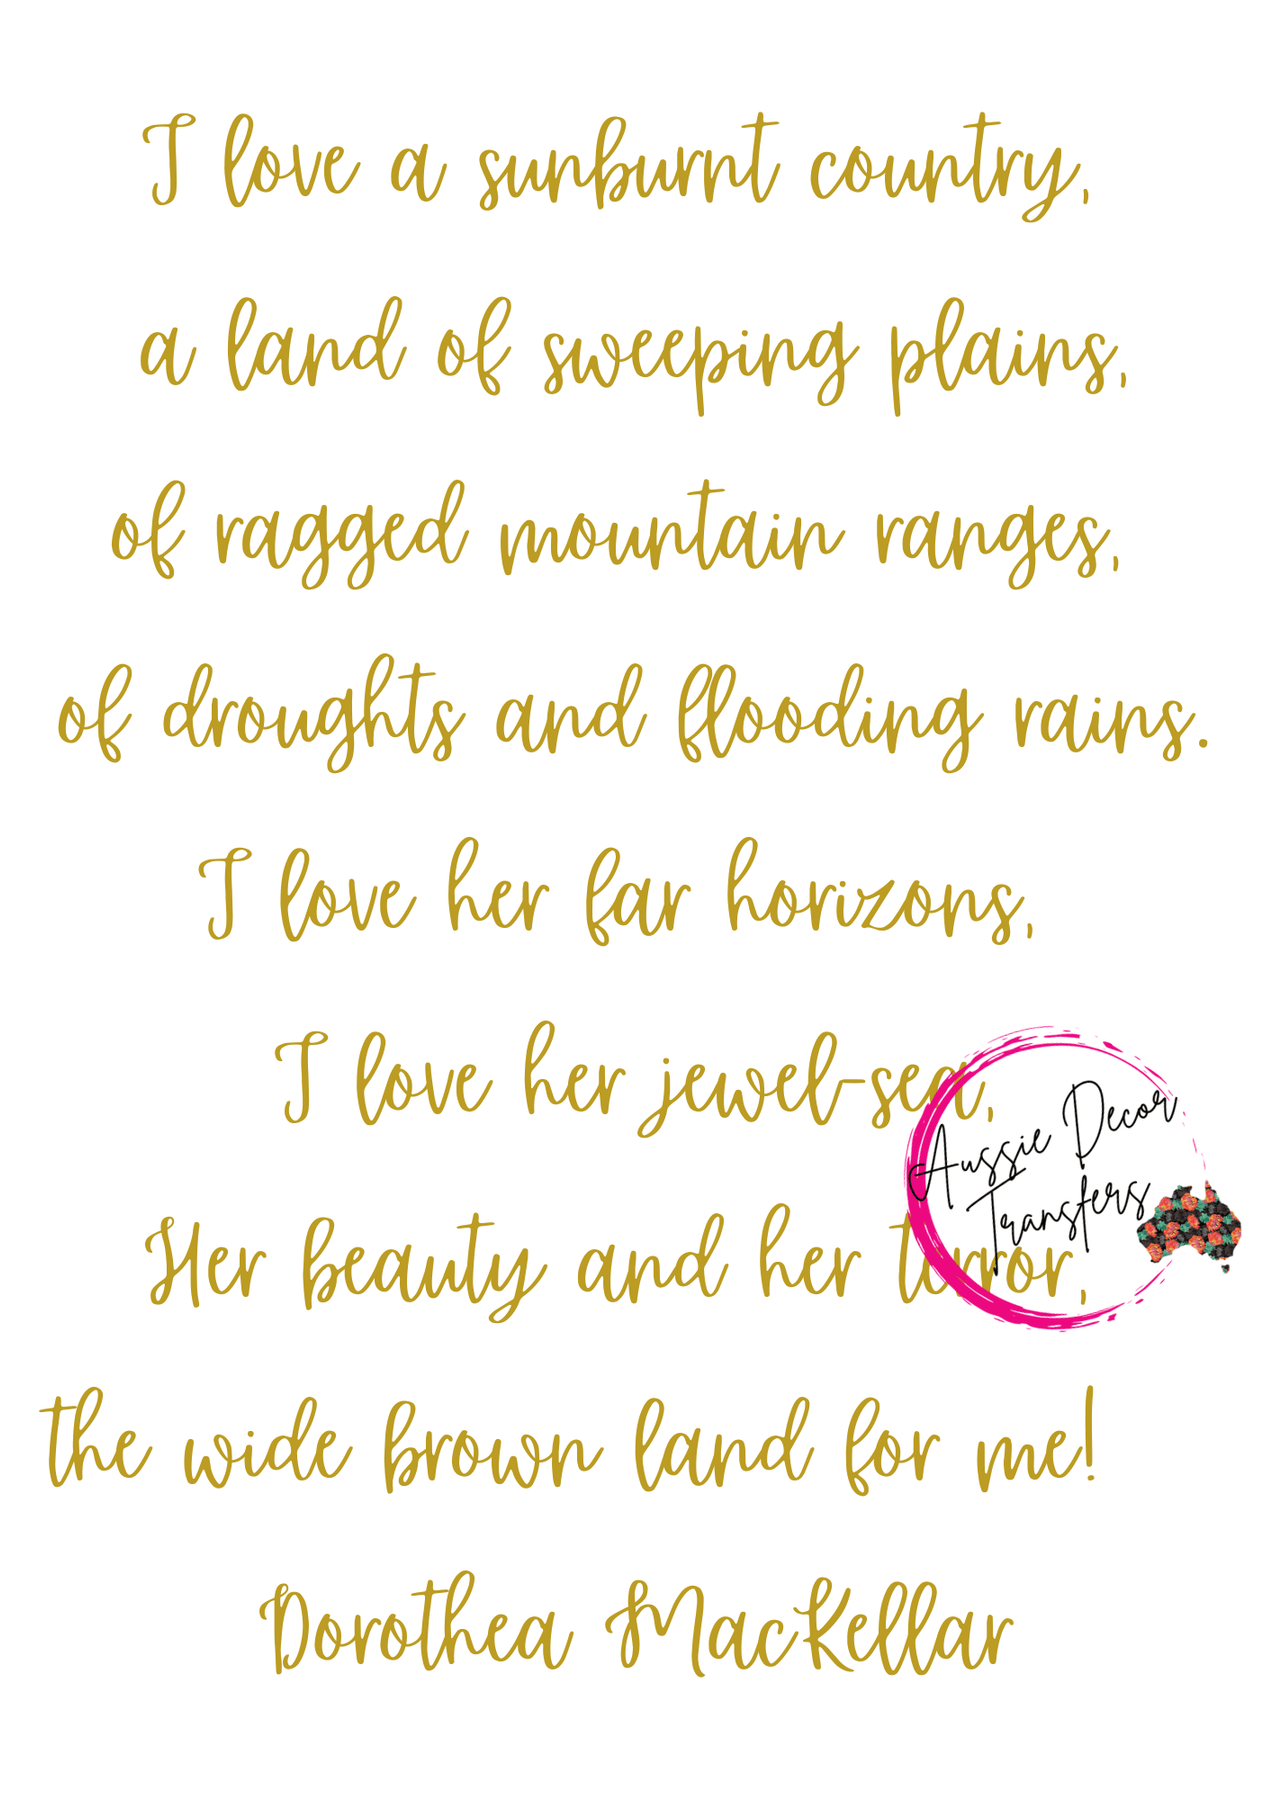 I love a sunburnt country,
a land of sweeping plains,
of ragged mountain ranges,
of droughts and flooding rains.
I love her far horizons,
I love her jewel-sea,
Her beauty and her terror,
the wide brown land for me!
Dorothea MacKellar
Aussie Decor
Transfers